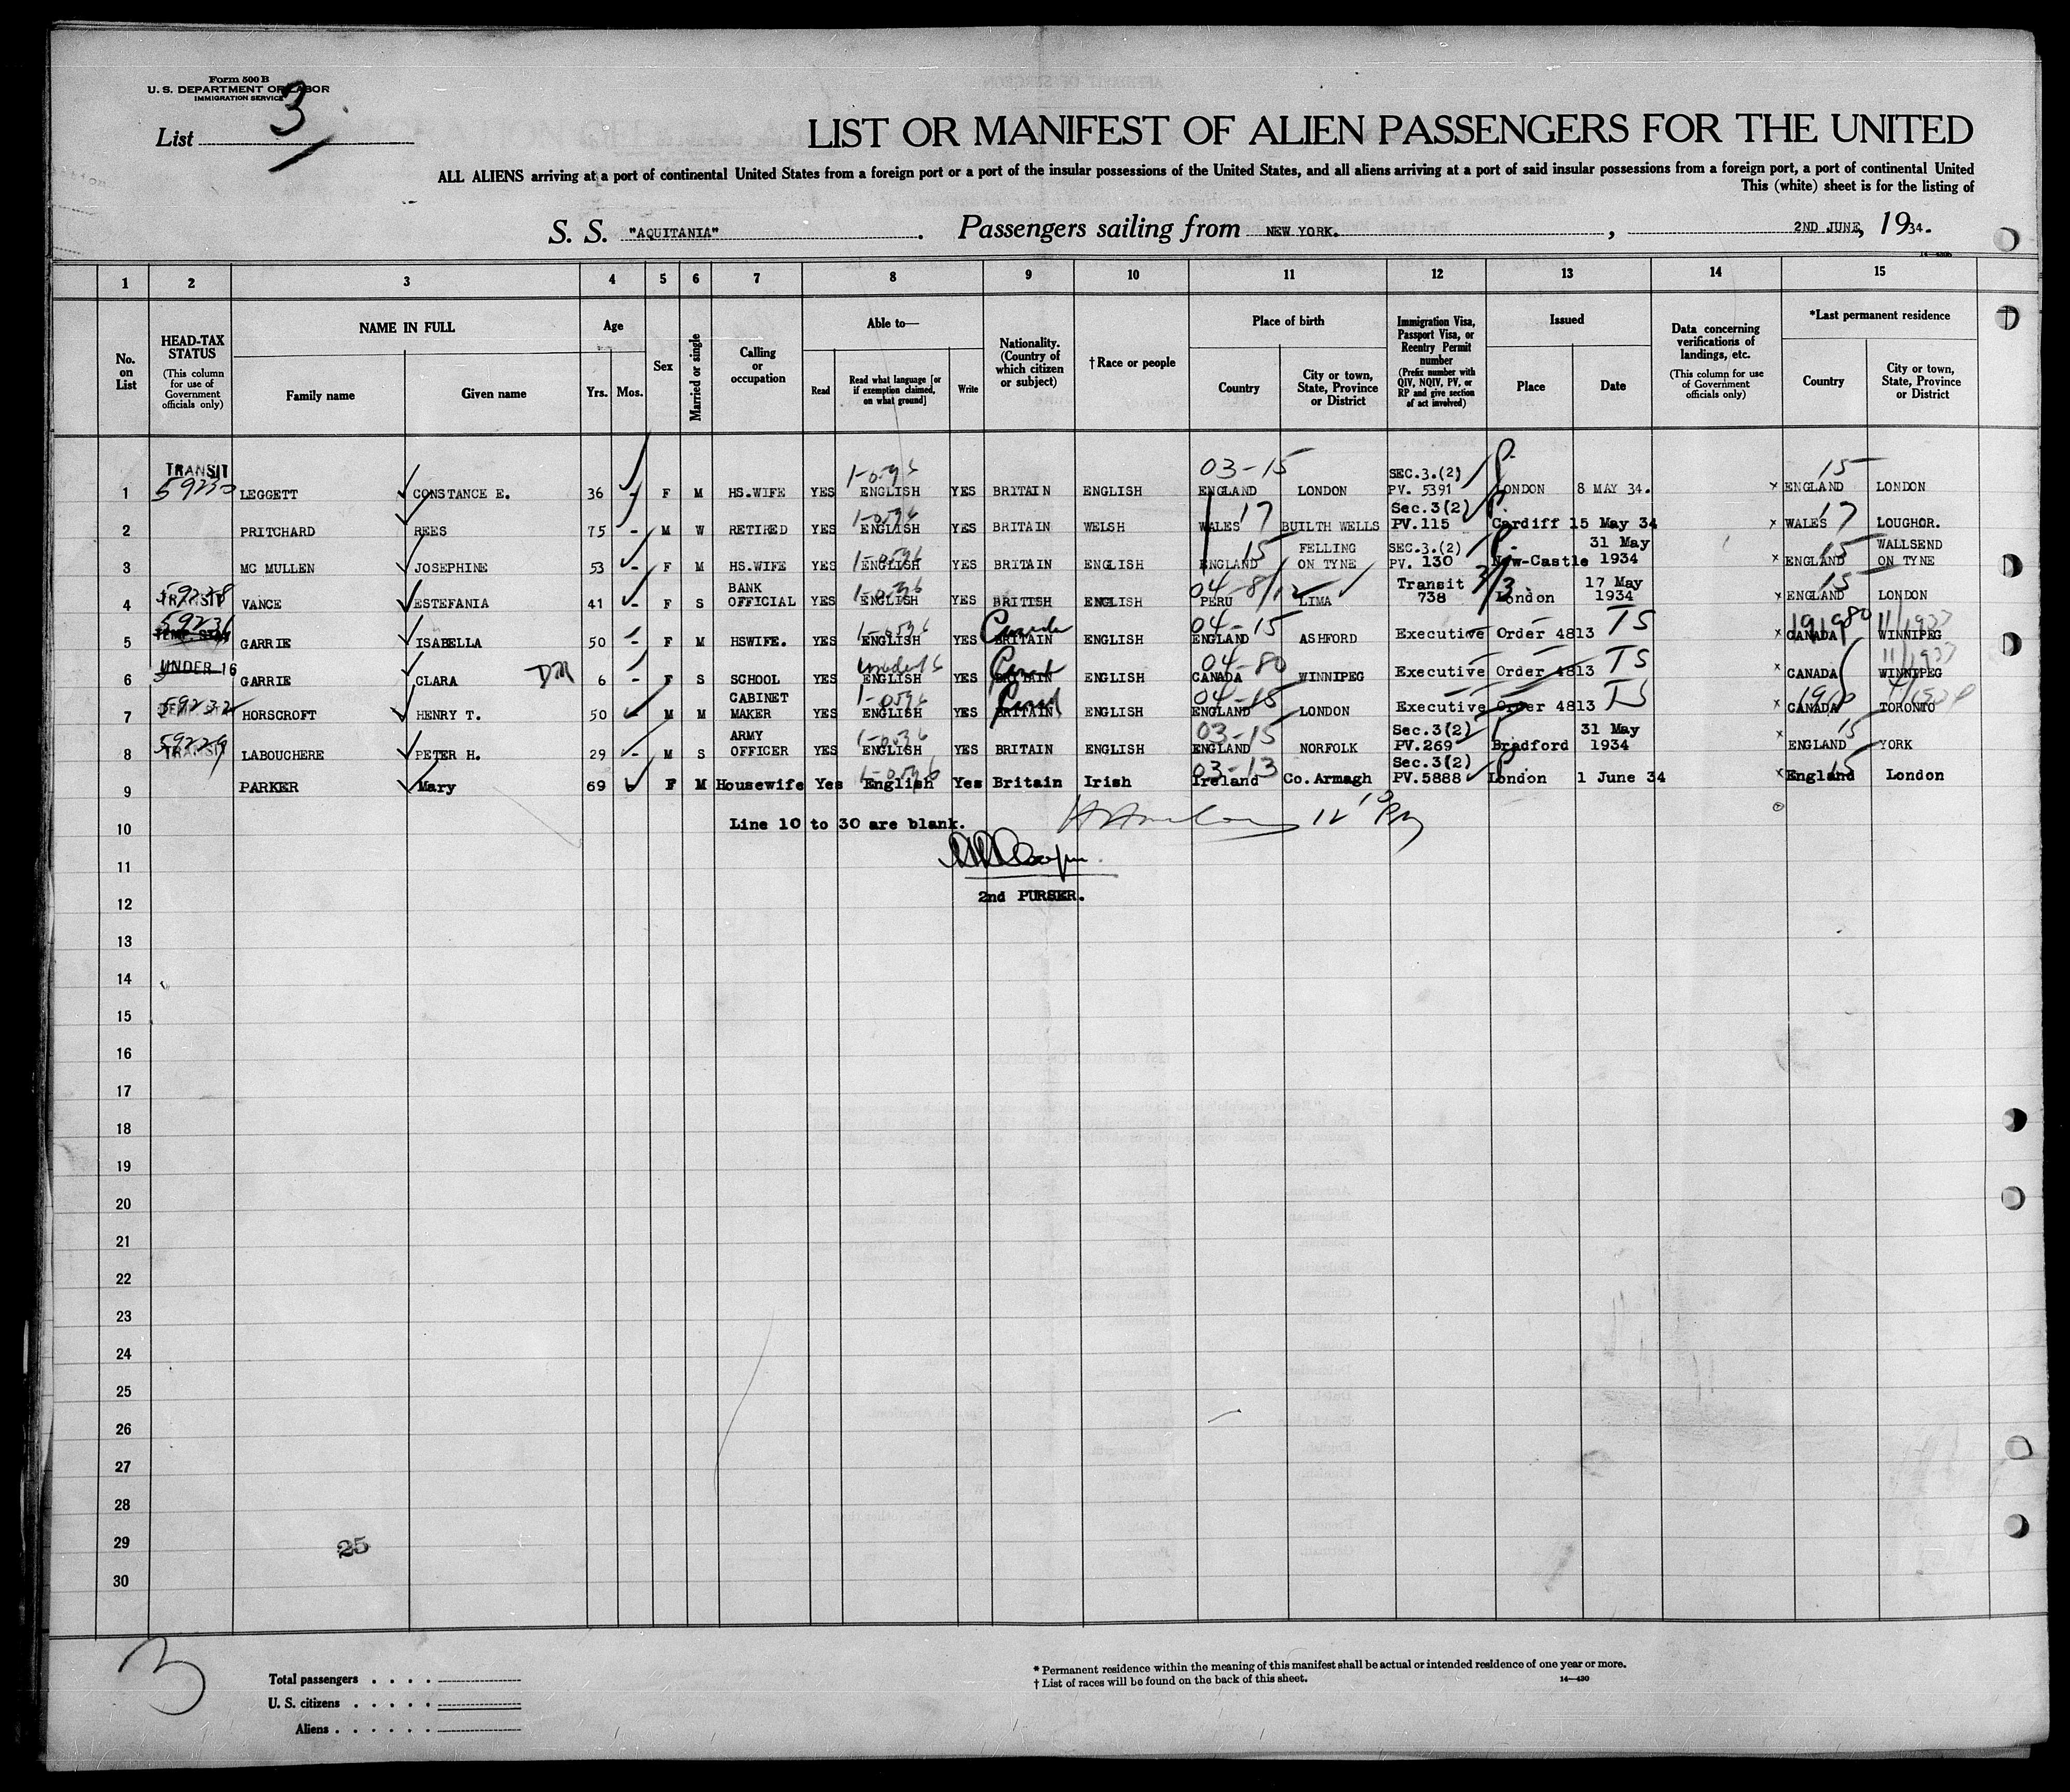 Form 500 B
U. S. DEPARTMENT OF LABOR
IMMIGRATION SERVICE
List 3
LIST OR MANIFEST OF ALIEN PASSENGERS FOR THE UNITED
ALL ALIENS arriving at a port of continental United States from a foreign port or a port of the insular possessions of the United States, and all aliens arriving at a port of said insular possessions from a foreign port, a port of continental United
This (white) sheet is for the listing of
S. S. "AQUITANIA". Passengers sailing from NEW YORK. , 2ND JUNE, 1934.
14—430b
1 2 3 4 5 6 7 8 9 10 11 12 13 14 15
No. on List
HEAD-TAX STATUS (This column for use of Government officials only)
NAME IN FULL
Family name Given name
Age
Yrs. Mos.
Sex
Married or single
Calling or occupation
Able to—
Read Read what language [or if exemption claimed, on what ground] Write
Nationality. (Country of which citizen or subject)
†Race or people
Place of birth
Country City or town, State, Province or District
Immigration Visa, Passport Visa, or Reentry Permit number (Prefix number with QIV, NQIV, PV, or RP and give section of act involved)
Issued
Place Date
Data concerning verifications of landings, etc. (This column for use of Government officials only)
*Last permanent residence
Country City or town, State, Province or District
TRANSIT 03-15 SEC.3.(2) P. 15
1 59230 LEGGETT CONSTANCE E. 36 - F M HS.WIFE YES ENGLISH YES BRITAIN ENGLISH ENGLAND LONDON PV. 5391 LONDON 8 MAY 34. x ENGLAND LONDON
Sec.3(2)
2 PRITCHARD REES 75 - M W RETIRED YES ENGLISH YES BRITAIN WELSH WALES 17 BUILTH WELLS PV.115 Cardiff 15 May 34 x WALES 17 LOUGHOR.
15 FELLING SEC.3.(2) 31 May 15 WALLSEND
3 MC MULLEN JOSEPHINE 53 - F M HS.WIFE YES ENGLISH YES BRITAIN ENGLISH ENGLAND ON TYNE PV. 130 New-Castle 1934 x ENGLAND ON TYNE
59228 BANK 04-8/12 Transit 17 May 15
4 TRANSIT VANCE ESTEFANIA 41 - F S OFFICIAL YES ENGLISH YES BRITISH ENGLISH PERU LIMA 738 London 1934 x ENGLAND LONDON
59231 Canada 04-15 TS
5 TEMP. STAY GARRIE ISABELLA 50 - F M HSWIFE. YES ENGLISH YES BRITAIN ENGLISH ENGLAND ASHFORD Executive Order 4813 x CANADA WINNIPEG
UNDER 16 under 16 04-80 TS
6 GARRIE CLARA DM 6 - F S SCHOOL YES ENGLISH YES BRITAIN ENGLISH CANADA WINNIPEG Executive Order 4813 x CANADA WINNIPEG
59232 CABINET 04-15 TS
7 HORSCROFT HENRY T. 50 - M M MAKER YES ENGLISH YES BRITAIN ENGLISH ENGLAND LONDON Executive Order 4813 x CANADA TORONTO
59229 ARMY 03-15 Sec.3(2) 31 May 15
8 TRANSIT LABOUCHERE PETER H. 29 - M S OFFICER YES ENGLISH YES BRITAIN ENGLISH ENGLAND NORFOLK PV.269 Bradford 1934 x ENGLAND YORK
03-13 Sec.3(2) 15
9 PARKER Mary 69 F M Housewife Yes English Yes Britain Irish Ireland Co.Armagh PV.5888 London 1 June 34 x England London
10 Line 10 to 30 are blank.
11
12 2nd PURSER.
13
14
15
16
17
18
19
20
21
22
23
24
25
26
27
28
29 25
30
3
Total passengers
U. S. citizens
Aliens
* Permanent residence within the meaning of this manifest shall be actual or intended residence of one year or more.
† List of races will be found on the back of this sheet. 14—430